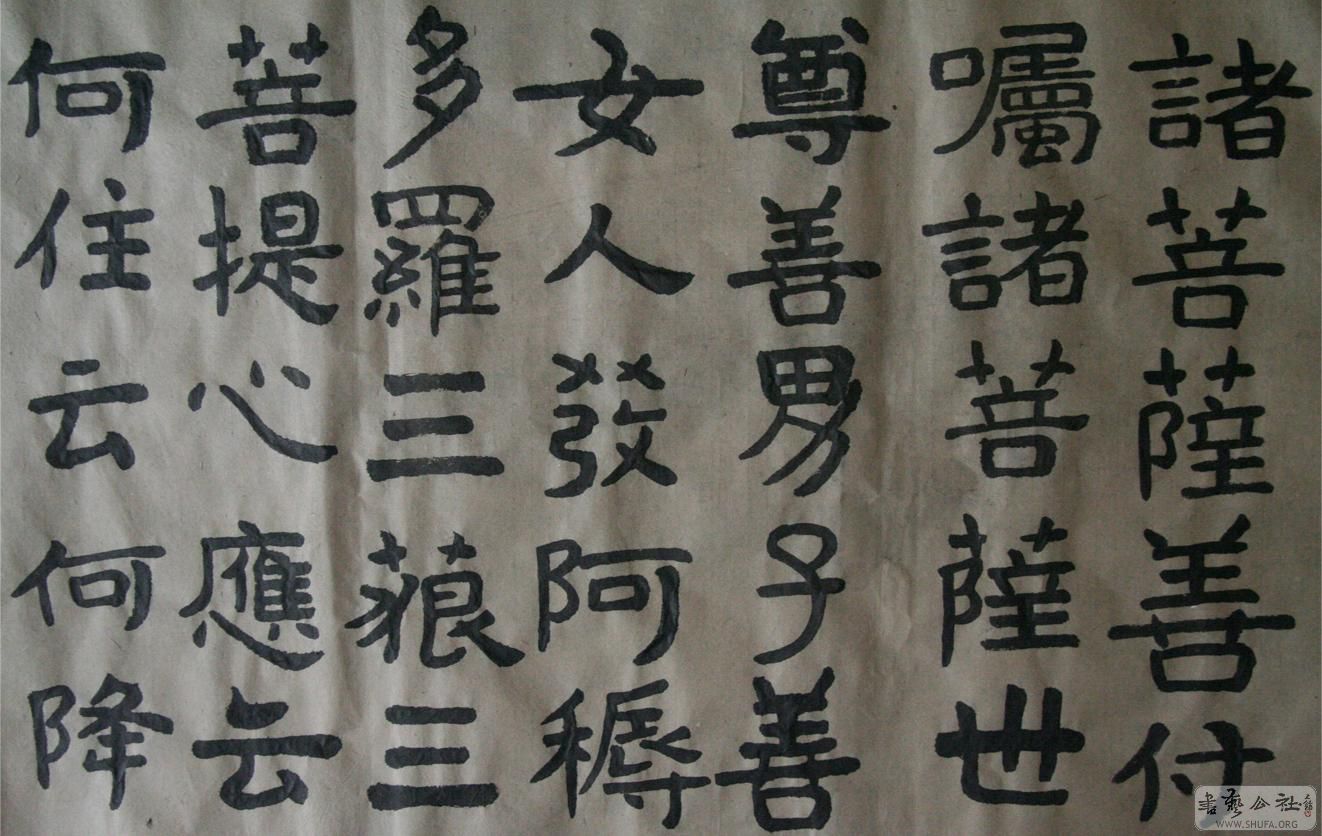 諸菩薩善付
囑諸菩薩世
尊善男子善
女人發阿耨
多羅三藐三
菩提心應云
何住云何降
书藝公社
WWW.SHUFA.ORG